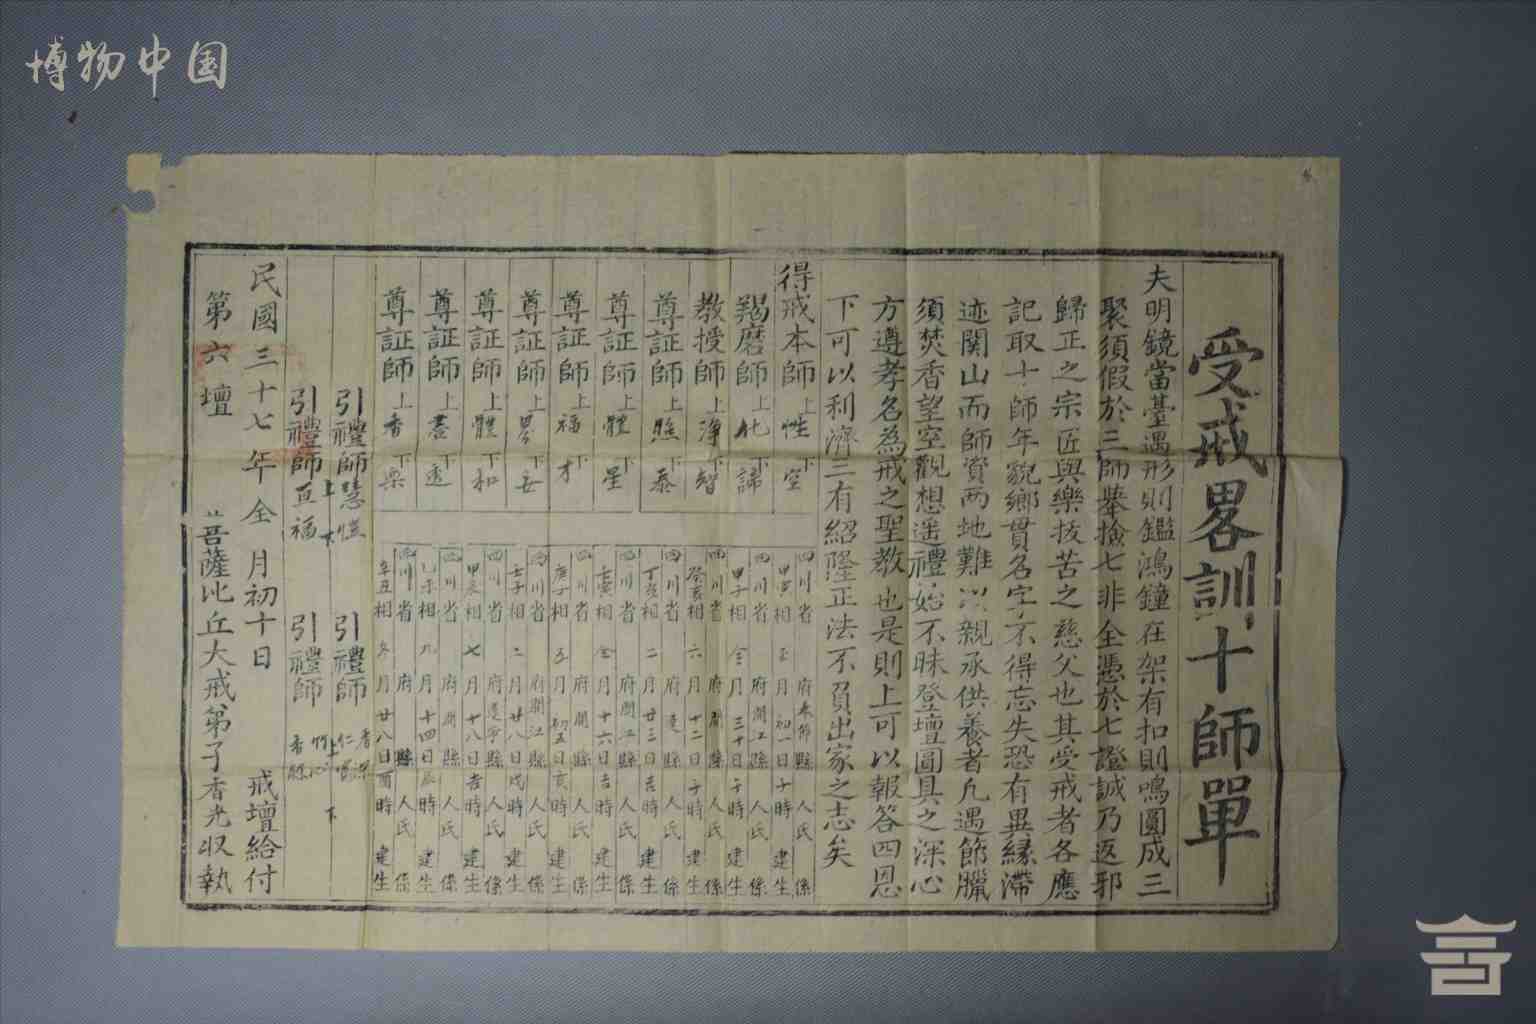 博物中国
受戒畧訓十師單
夫明鏡當臺遇形則鑑鴻鐘在架有扣則鳴圓成三
聚須假於三師舉撿七非全憑於七證誠乃返邪
歸正之宗匠與樂拔苦之慈父也其受戒者各應
記取十師年貌鄉貫名字不得忘失恐有異緣滯
迹関山而師資两地難以親承供養者凡遇節臘
須焚香望空觀想遥禮始不昧登壇圓具之深心
方遵孝名為戒之聖教也是則上可以報答四恩
下可以利濟三有紹隆正法不負出家之志矣
得戒本師上性下空
羯磨師上化下諦
教授師上淨下智
尊証師上照下泰
尊証師上體下星
尊証師上福下才
尊証師上下
尊証師上體下和
尊証師上下透
尊証師上香下樂
四川省 府奉節縣人氏係
甲寅相 月初一日子時建生
四川省 府開江縣人氏係
甲子相 月三十日子時建生
四川省 府開縣人氏係
癸亥相六月十二日子時建生
四川省 府達縣人氏係
丁亥相二月廿三日吉時建生
四川省 府開江縣人氏係
相 月十六日吉時建生
四川省 府開縣人氏係
庚子相五月初五日亥時建生
四川省 府開江縣人氏係
壬子相二月廿八日戌時建生
四川省 府遂寧縣人氏係
甲辰相七月十八日吉時建生
四川省 府開縣人氏係
乙未相九月十四日辰時建生
四川省 府縣人氏係
辛丑相冬月廿八日酉時建生
引禮師上慧下愷
引禮師上仁下
引禮師 福
引禮師
民國三十七年全月初十日 戒壇給付
第六壇 菩薩比丘大戒弟子香光収執